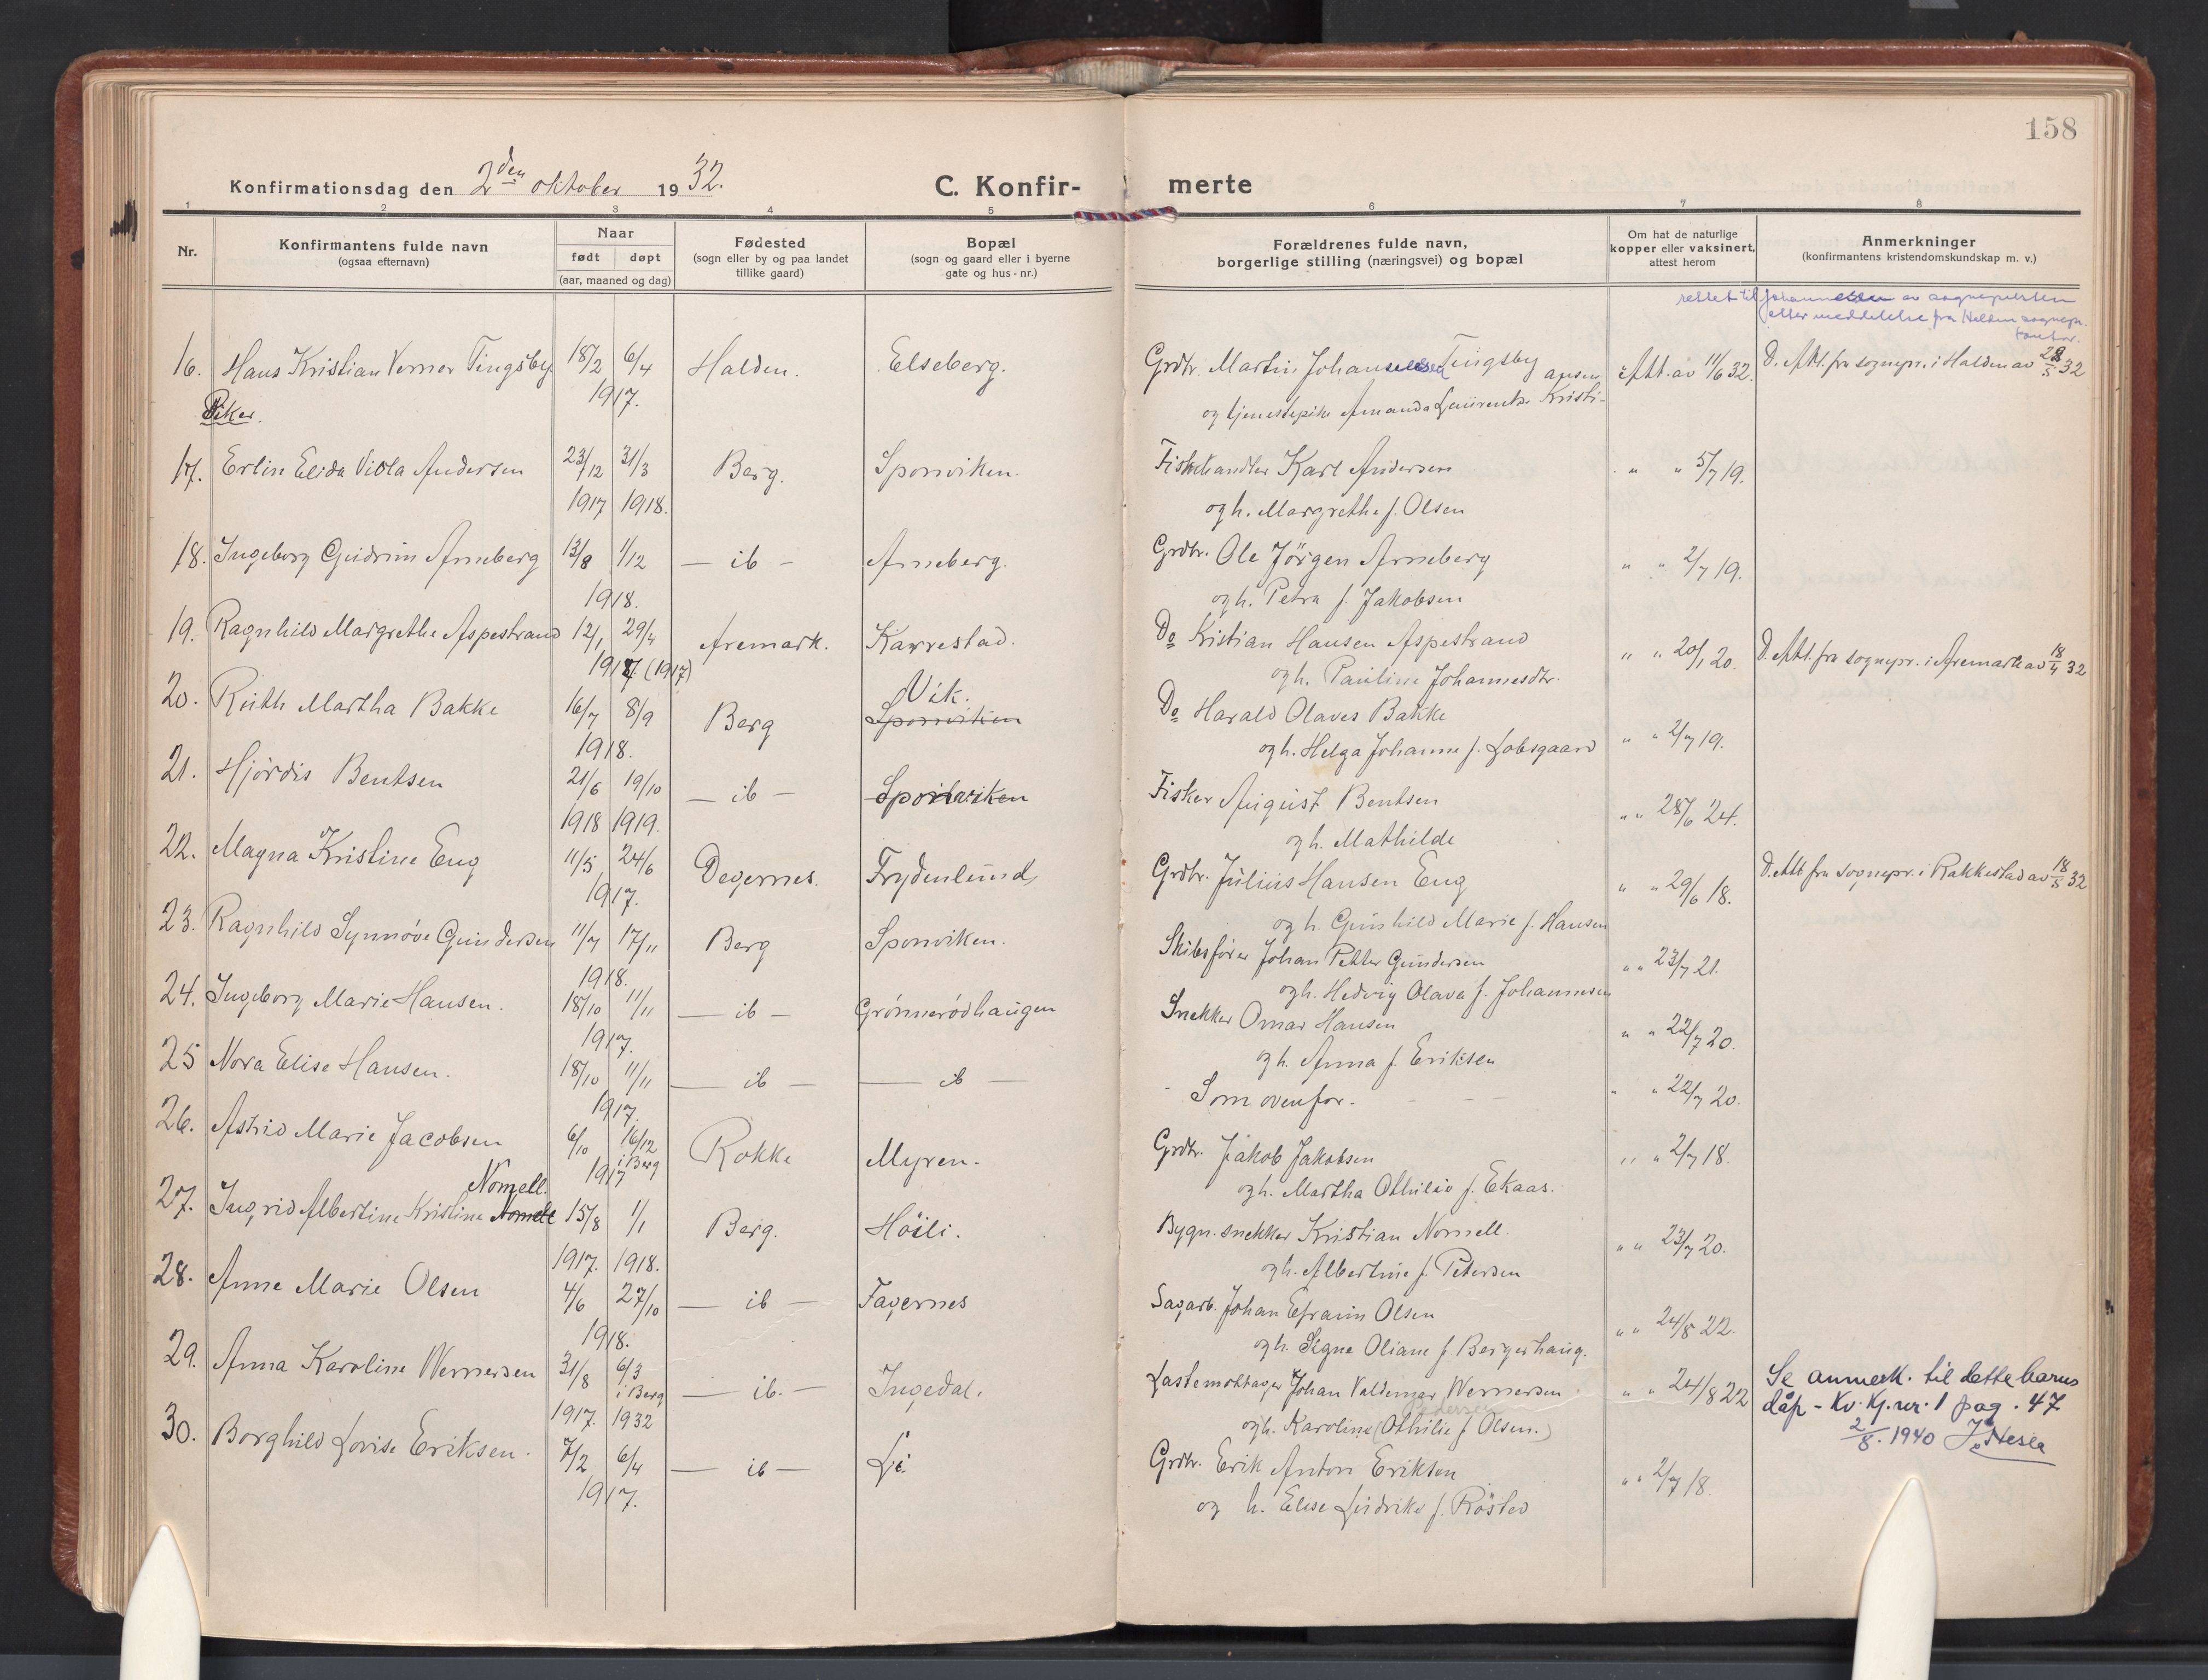 158
Konfirmationsdag den 2den oktober 1932.
C. Konfirmerte
1 2 3 4 5 6 7 8
Nr.
Konfirmantens fulde navn
(ogsaa efternavn)
Naar
født døpt
(aar, maaned og dag)
Fødested
(sogn eller by og paa landet
tillike gaard)
Bopæl
(sogn og gaard eller i byerne
gate og hus-nr.)
Forældrenes fulde navn,
borgerlige stilling (næringsvei) og bopæl
Om hat de naturlige
kopper eller vaksinert,
attest herom
Anmerkninger
(konfirmantens kristendomskundskap m. v.)
rettet til Johannesen av sognepresten
etter meddelelse fra Halden sognepr.
kontor.
16. Hans Kristian Verner Tingsby 18/2 6/4 Halden. Elseberg. Grdbr. Martin Johannesen Tingsby Att. av 11/6 32. D. Att. fra sognepr. i Halden av 28/5 32
1917. og tjenestepike Amanda Laurentze Kristiansen
Piker.
17. Erlin Elida Viola Andersen 23/12 31/3 Berg. Sponviken. Fiskehandler Karl Andersen " " 5/7 19.
1917 1918. og h. Margrethe f. Olsen
18. Ingeborg Gudrun Arneberg 13/8 1/12 — ib — Arneberg. Grdbr. Ole Jörgen Arneberg " " 2/7 19.
1918. og h. Petra f. Jakobsen
19. Ragnhild Margrethe Aspestrand 12/1 29/4 Aremark. Karrestad. Do Kristian Hansen Aspestrand " " 20/1 20. D. Att. fra sognepr. i Aremark av 18/4 32
1917 (1917) og h. Pauline Johannesdtr.
20. Ruth Martha Bakke 16/7 8/9 Berg Vik. Sponviken Do Harald Olaves Bakke " " 2/7 19.
1918. og h. Helga Johanne f. Lobsgaard
21. Hjördis Bentsen 21/6 19/10 — ib — Sponviken Fisker August Bentsen " " 28/6 24.
1918 1919. og h. Mathilde
22. Magna Kristine Eng 11/5 24/6 Degernes. Frydenlund, Grdbr. Julius Hansen Eng " " 29/6 18. D. Att fra sognepr. i Rakkestad av 18/5 32
1917. og h. Gunhild Marie f. Hansen
23. Ragnhild Synnöve Gundersen 11/7 17/11 Berg Sponviken. Skibsförer Johan Petter Gundersen " " 23/7 21.
1918. og h. Hedvig Olava f. Johannesen
24. Ingeborg Marie Hansen. 18/10 11/11 — ib — Grönnerödhaugen Snekker Omar Hansen " " 22/7 20.
1917. og h. Anna f. Eriksen
25 Nora Elise Hansen. 18/10 11/11 — ib — — ib — Som ovenfor. " " 22/7 20.
1917.
26. Astrid Marie Jacobsen 6/10 16/12 i Berg Rokke Myren. Grdbr. Jakob Jakobsen " " 2/7 18.
1917 og h. Martha Othilie f. Ekaas.
Nomell.
27. Ingrid Albertine Kristine Nomell 15/8 1/1 Berg. Höili. Bygn. snekker Kristian Nomell. " " 23/7 20.
1917. 1918. og h. Albertine f. Petersen
28. Anne Marie Olsen 4/6 27/10 — ib — Fagernes Sagarb. Johan Efraim Olsen " " 24/8 22.
1918. og h. Signe Oliane f. Bergerhaug.
29. Anna Karoline Wernersen 31/8 6/3 i Berg — ib. — Ingedal. Lastemottager Johan Valdemar Wernersen " " 24/8 22 Se anmerk. til dette barns
Pedersen
1917. 1932 og h. Karoline (Othilie f Olsen.) dåp - Kv. Kj. nr. 1 pag. 47
2/8. 1940
30. Borghild Lovise Eriksen. 7/2 6/4 — ib — Li. Grdbr. Erik Anton Eriksen " " 2/7 18.
1917. og h. Elise f. Rösted